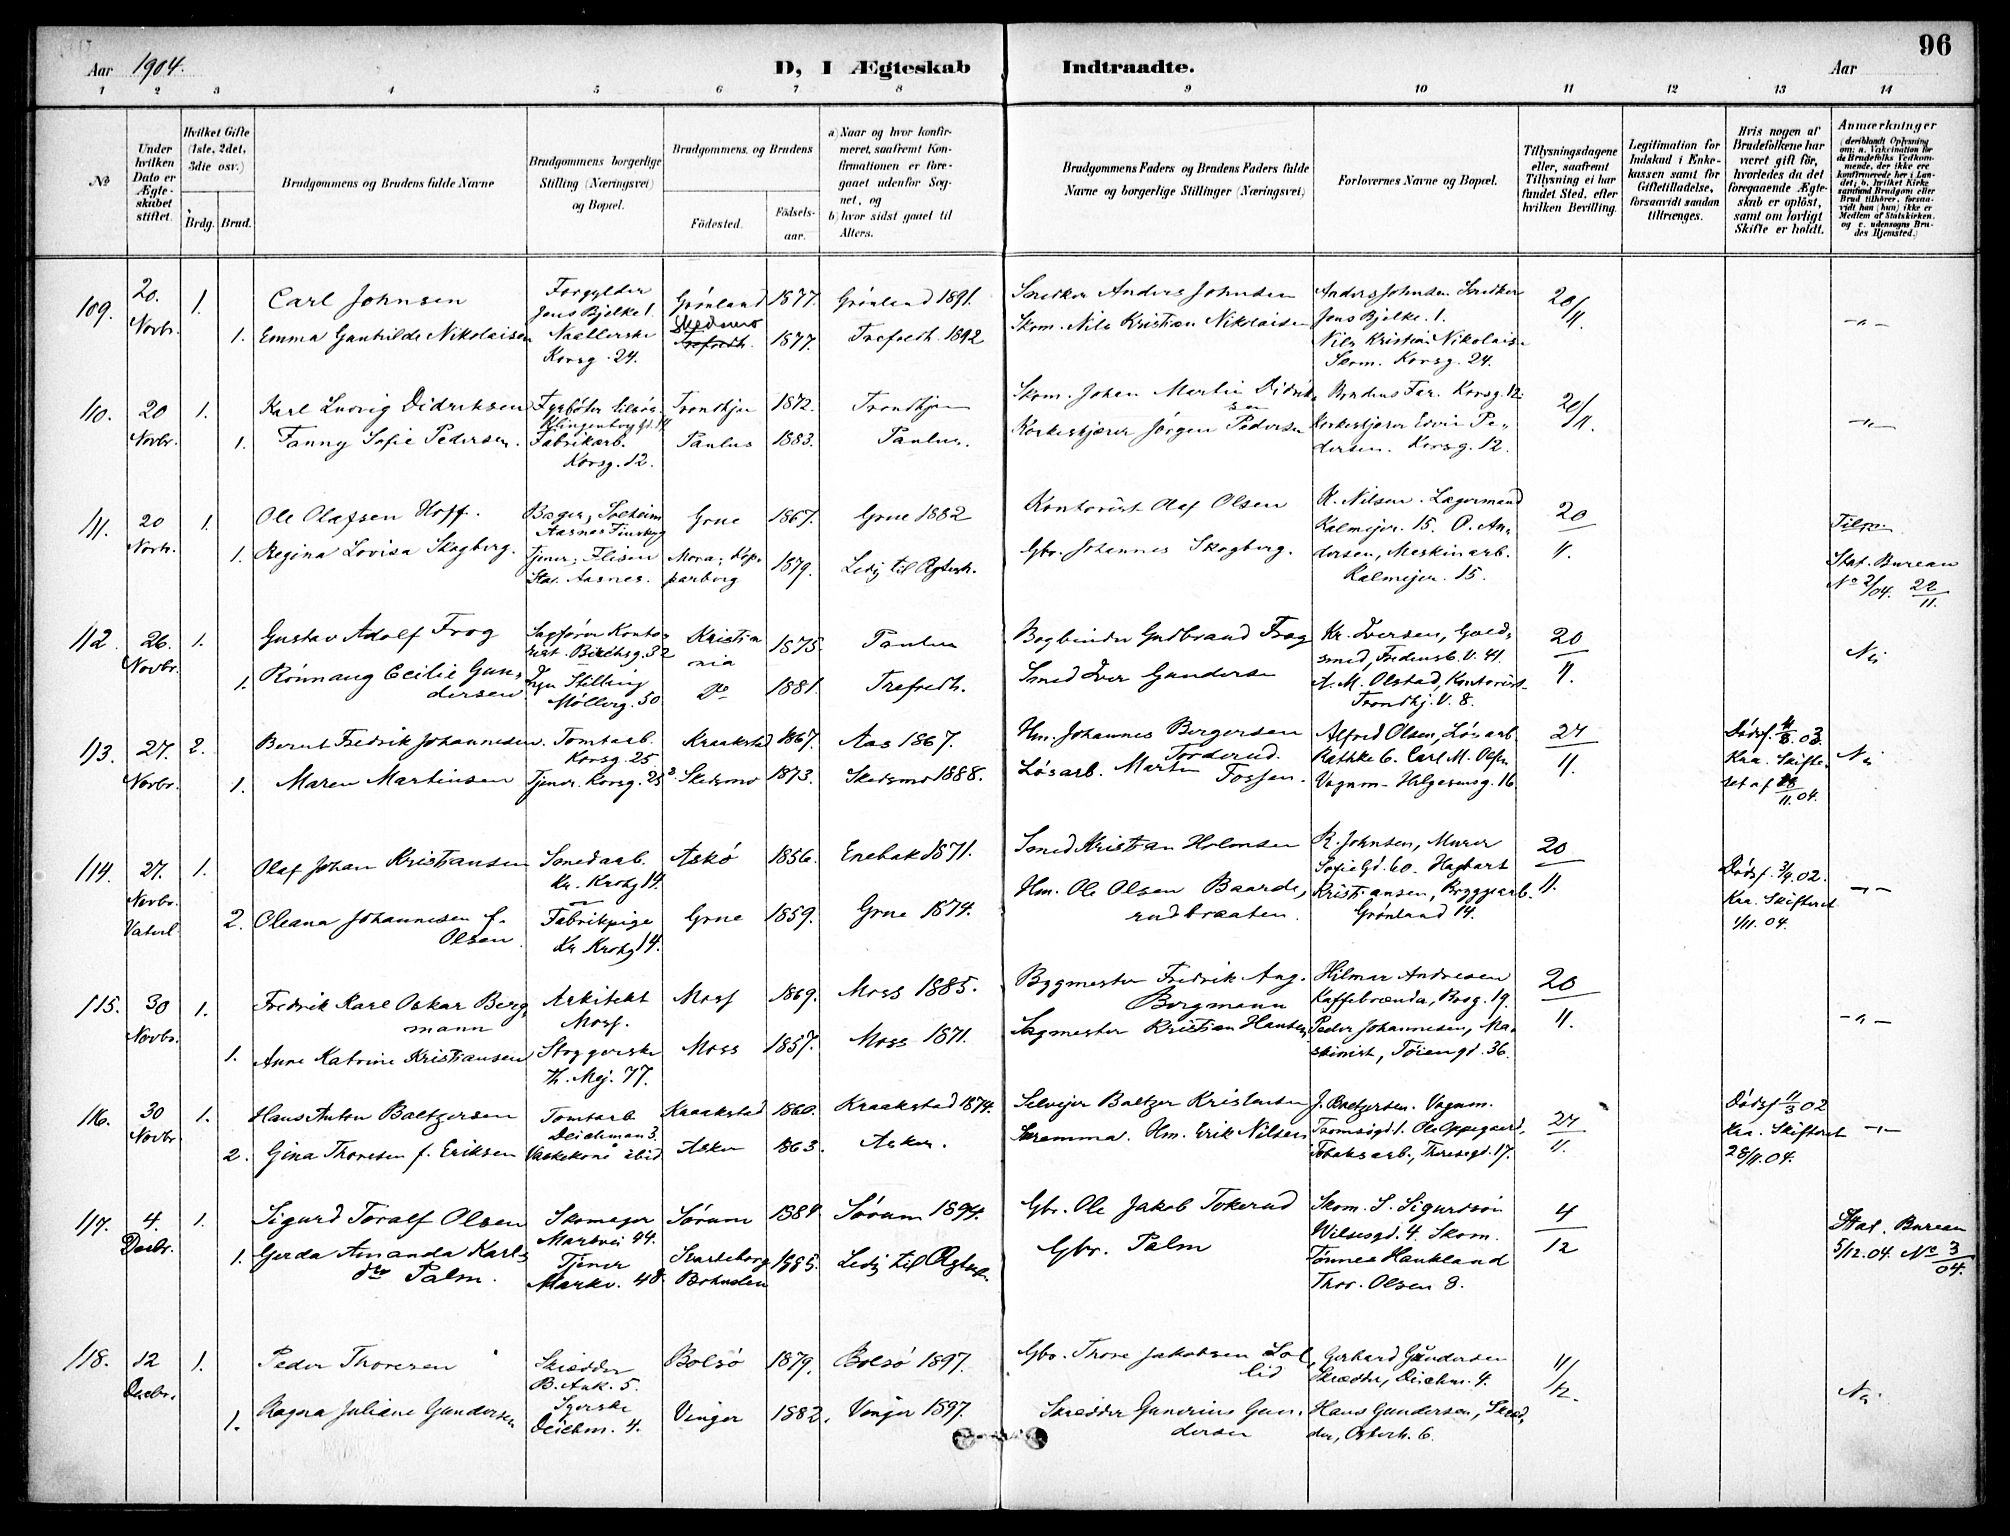 Aar 1904.
D, I Ægteskab Indtraadte.
Aar
96
1 2 3 4 5 6 7 8 9 10 11 12 13 14
No
Under hvilken Dato er Ægteskabet stiftet.
Hvilket Gifte (1ste, 2det, 3die osv.)
Brdg. Brud.
Brudgommens og Brudens fulde Navne
Brudgommens borgerlige Stilling (Næringsvei) og Bopæl.
Brudgommens og Brudens
Födested. Födsels-aar.
a) Naar og hvor konfirmeret, saafremt Konfirmationen er foregaaet udenfor Sognet, og
b) hvor sidst gaaet til Alters.
Brudgommens Faders og Brudens Faders fulde Navne og borgerlige Stillinger (Næringsvei)
Forlovernes Navne og Bopæl.
Tillysningsdagene eller, saafremt Tillysning ei har fundet Sted, efter hvilken Bevilling.
Legitimation for Indskud i Enkekassen samt for Giftetilladelse, forsaavidt saadan tiltrænges.
Hvis nogen af Brudefolkene har været gift för, hvorledes da det foregaaende Ægteskab er oplöst, samt om lovligt Skifte er holdt.
Anmærkninger (deriblandt Oplysning om: a. Vakcination for de Brudefolks Vedkommende, der ikke ere konfirmerede her i Landet; b. hvilket Kirkesamfund Brudgom eller Brud tilhörer, forsaavidt han (hun) ikke er Medlem af Statskirken. og c. udensogns Brudes Hjemsted.)
109. 20. Novbr. 1. Carl Johnsen Forgylder Jens Bjelke 1. Grönland 1877. Grönland 1891. Snedker Anders Johnsen Anders Johnsen Snedker Jens Bjelke. 1. 20/11. -"-
1. Emma Gunhilde Nikolaisen Korsg. 24. Trefoldh. 1877. Trefoldh. 1892 Skom. Nils Kristian Nikolaisen Nils Kristian Nikolais. Korsg. 24.
110. 20 Novbr. 1. Karl Ludvig Didriksen Fyrböter Klingenberg gd. 14 Trondhjm 1872. Trondhjem Skom. Johan Martin Didriksen Brudens Far. Korsg. 12. 20/11. -"-
1. Fanny Sofie Pedersen. Fabrikarb. Korsg. 12. Paulus 1883. Paulus. Korkeskjærer Jörgen Pedersen Korkeskjærer Pedersen. Korsg. 12.
111. 20 Novbr. 1. Ole Olafsen Hoff. Bager, Solheim Aasnes Finskog Grue 1867. Grue 1882 Kontorist Olaf Olsen K. Nilsen. Lagermand Kalmejer. 15. O. An- 20 11. 
1. Regina Lovisa Skogberg. Tjener, Flisen Stat. Aasnes. Mora, Kopparberg 1879. Ledig til Ægtesk. Gbr. Johannes Skogberg. dersen, Maskinarb. Kalmejer. 15. Stat. Bureau No 2/04. 22/11.
112. 26. Novbr. 1. Gustav Adolf Frog Sagförer Kontorist. Birchsg. 32 Kristiania 1875. Paulus Bogbinder Gudbrand Frog Kr. Iversen, Guldsmed, Fredensb. V. 41. 20 11. Nei
1. Rönnaug Cecilie Gundersen Ingen Stilling Möllerg. 50 Do 1881. Trefoldh. Smed Iver Gundersen A. M. Olstad, Kontorist Trondhj. V. 8.
113. 27. Novbr. 2. Bernt Fredrik Johannesen. Tomtarb. Korsg. 25 Kraakstad 1867. Aas 1867. Hm. Johannes Bergersen Torderud. Alfred Olsen, Lösarb. Rathke 6. Carl M. Olsen 27 11. Dödsf. 11/8 03 Kra. Skifteret af 28/11.04. Nei
1. Maren Martinsen Tjener. Korsg. 25 Skedsmo 1873. Skedsmo 1888. Lösarb. Martin Fossen. Vognm. Helgesensg. 16
114. 27. Novbr. Vaterl 1. Olaf Johan Kristiansen Smedarb. Kr. Krohg 14. Askö 1856. Enebak 1871. Smed Kristian Holmsen R. Johnsen, Murer Sofie Gd. 60. Hagbart 20 11. Dödsf. 3/9 02. Kra. Skifteret 1/11. 04. -"-
2. Oleana Johannesen f. Olsen. Fabrikpige Kr. Krohg 14. Grue 1859. Grue 1874. Hm. Ole Olsen Baarderudbraaten. Kristiansen, Bryggearb. Grönland 14.
115. 30 Novbr. 1. Fredrik Karl Oskar Bergmann Arkitekt Moss. Moss 1869. Moss 1885. Bygmester Fredrik Aug. Bergmann Hilmar Andresen Kaffebrænder, Brog. 19. 20 11. -"-
1. Anne Katrine Kristiansen Th. Mej. 77. Moss 1857. Moss 1871. Sagmester Kristian Hansen Peder Johannesen, Maskinist, Töiengd. 36.
116. 30 Novbr 1. Hans Anton Baltzersen Tomtarb Deichman 3. Kraakstad 1860. Kraakstad 1874. Selvejer Baltzer Kristensen J. Baltzersen. Vognm. Tromsögd 1. Ole Oppegaard, 27 11. Dödsf 11/3 02 Kra. Skifteret 28/11.04. -"-
2. Gina Thoresen f. Eriksen Vaskekone ibid Asker 1863. Asker. Hm. Erik Nilsen Tobaksarb., Theresegd. 17.
117. 4. Decbr. 1. Sigurd Toralf Olsen Skomager Markvei 44. Sörum 1881 Sörum 1894. Gbr. Ole Jakob Tokerud Skom. S. Sigurdson Wilsesgd. 4. Skom. 4 12 Stat. Bureau 5/12.04. No 3/04.
1. Gerda Amanda Karlsdtr Palm. Tjener Markv. 48 Svarteborg Bohuslen 1885. Ledig til Ægtesk. Gbr. Palm Tönnes Haukland Thor. Olsen 8.
118. 12 Decbr. 1. Peder Thoresen Skrædder B. Ank. 5. Bolsö 1879. Bolsö 1897. Gbr. Thore Jakobsen Solid Gerhard Gundersen Skrædder, Deichm. 4. 11/12. Nei
1. Ragna Juliane Gundersen Syerske Deichm. 4. Vinger 1882. Vinger 1897. Skrædder Gunerius Gundersen Hans Gundersen, Skrædder, Osterh. 6.